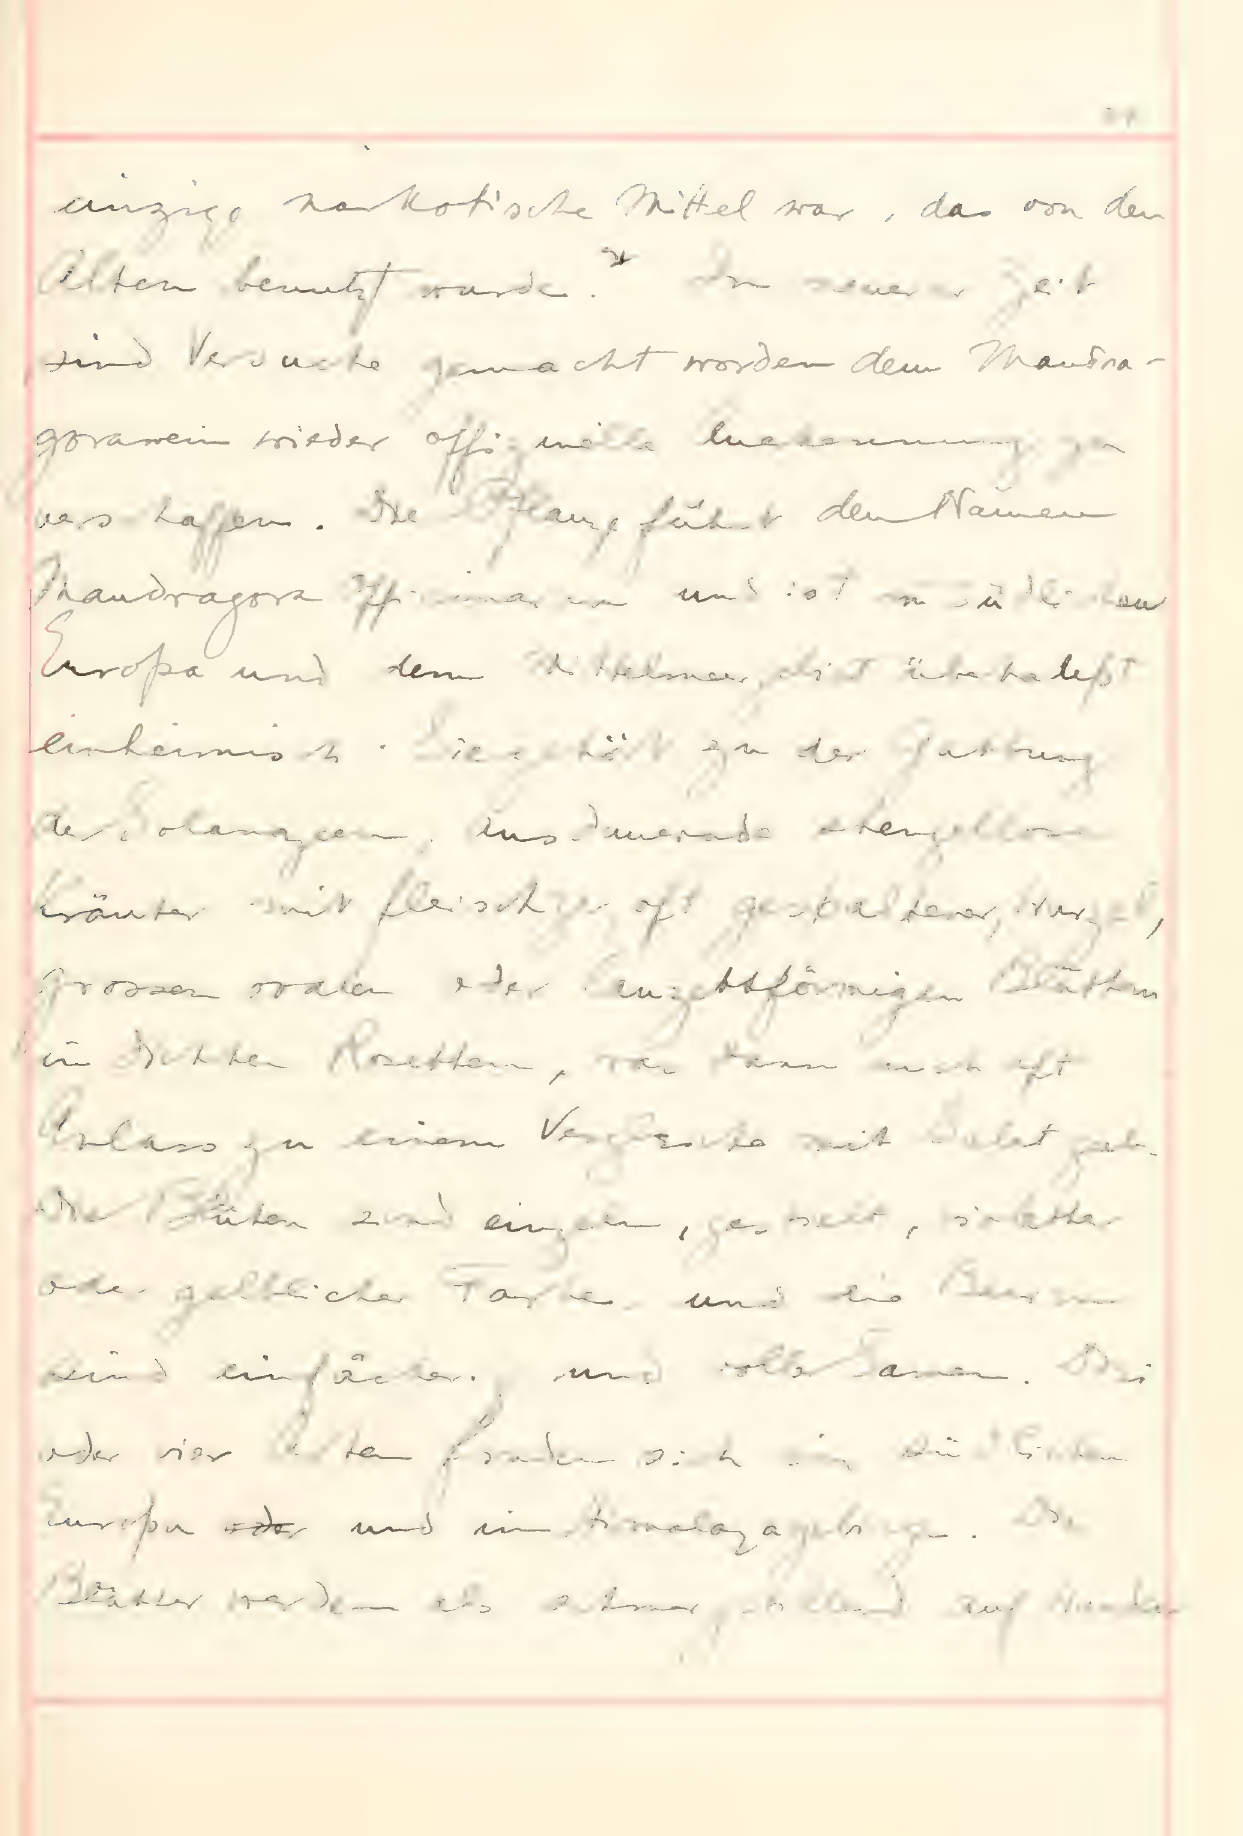 einzige narkotische Mittel war, das von den
Alten benutzt wurde.* In neuerer Zeit
sind Versuche gemacht worden dem Mandra-
gorawein wieder offizinelle Anerkennung zu
verschaffen. Die Pflanze führt den Namen
Mandragora officinarum und ist im südlichen
Europa und dem Mittelmeergebiet überhaupt
einheimisch. Sie gehört zu der Gattung
der Solanazeen, ausdauernde stengellose
Kräuter mit fleischiger oft gespaltener, Wurzel,
grossen ovalen oder lanzettförmigen Blättern
in dichten Rosetten, was dann auch oft
Anlass zu einem Vergleiche mit Salat gab.
Die Blüten sind einzeln, gestielt, violetter
oder gelblicher Farbe und die Beeren
sind einfächerig und voller Samen. Drei
oder vier Arten finden sich im südlichen
Europa oder und im Himalayagebirge. Die
Blätter werden als schmerzstillend auf Wunden